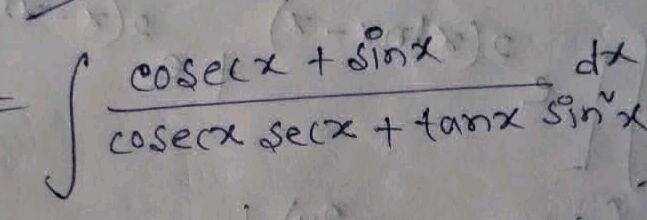 = ∫ (cosecx + sinx) / (cosecx secx + tanx sin²x) dx